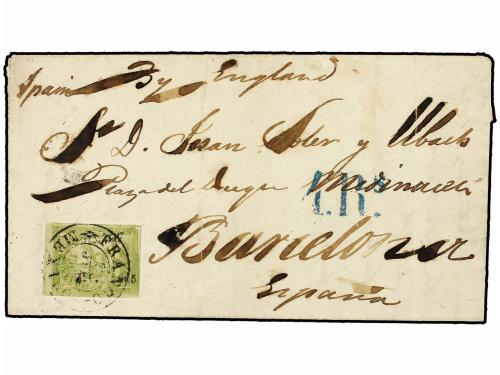 Spain By England
Sr. D. Juan Soler y Ubach
Plaza del Duque Medinaceli
4.Rs.
Barcelona
España
FRANCO